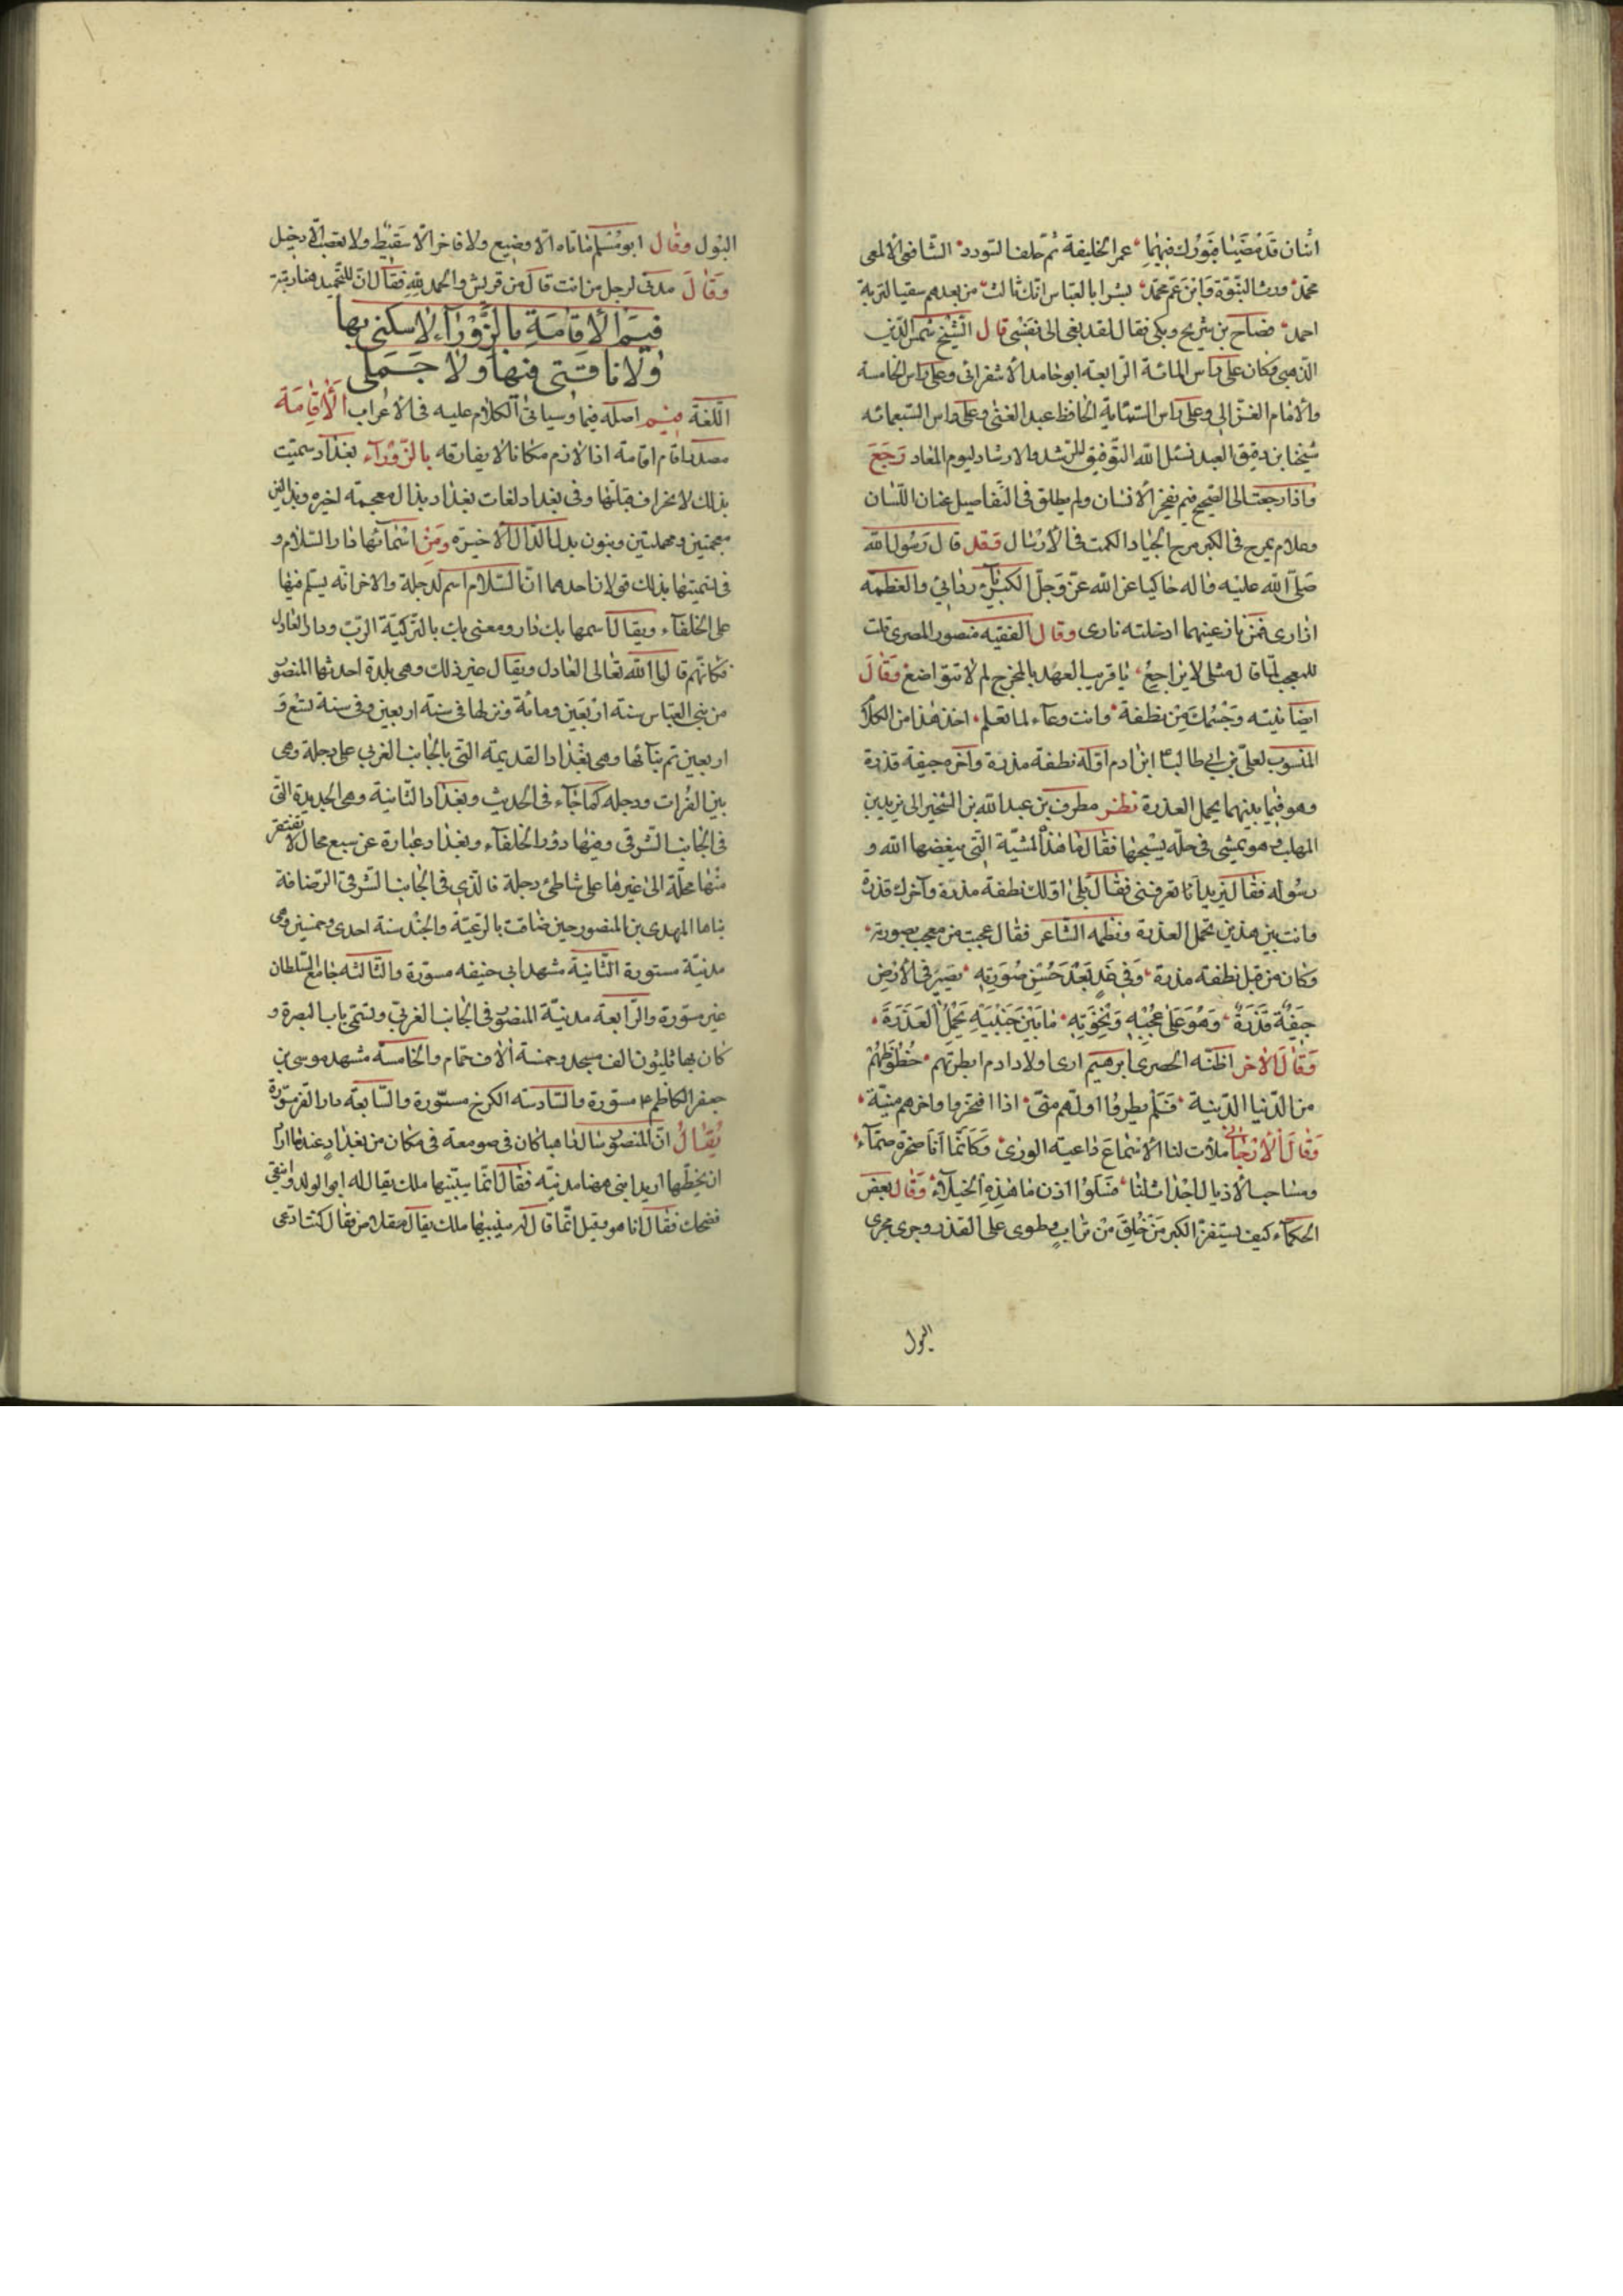 اثنان قد مضيا فبورك فيهما عمر الخليفة ثم حلف السودد الشافعى الالمعى
محمد ورث النبوة وابن عم محمد بشر ابا العباس انك ثالث من بعدهم سقيا لتربة
احمد فصاح بن شريح وبكى فقال لقد نعى الى نفسى قال الشيخ شمس الدين
الذهبى وكان على راس المائة الرابعة ابو حامد الاسفراينى وعلى راس الخامسة
والامام الغزالى وعلى راس الستمائة الحافظ عبد الغنى وعلى راس السبعمائه
شيخنا بن دقيق العيد نسئل الله التوفيق للرشد والارشاد ليوم المعاد رجع
واذا رجعت الى الصحيح فيم يفخر الانسان ولم يطلق فى التفاصيل عنان اللسان
وعلام يمرح فى الكبر مرح الجياد الكمت فى الارسال فقد قال رسول الله
صلى الله عليه واله حاكيا عن الله عز وجل الكبرياء ردائى والعظمه
ازارى فمن نازعنيهما ادخلته نارى وقال الفقيه منصور المصرى قلت
للمعجب لما قال مثلى لا يراجع يا قريب العهد بالمخرج لم لا تتواضع وقال
ايضا نتيه وجسمك من نطفة وانت وعاء لما تعلم اخذ هذا من الكلام
المنسوب لعلى بن ابى طالب ابن ادم اوله نطفة مذرة واخره جيفة قذرة
وهو فيما بينهما يحمل العذرة نظر مطرف بن عبد الله بن الشخير الى يزيد بن
المهلب وهو يمشى فى حلة يسحبها فقال ما هذه المشية التى يبغضها الله و
رسوله فقال يزيد اما تعرفنى فقال بلى اولك نطفة مذرة وآخرك قذرة
وانت بين هذين تحمل العذرة ونظمه الشاعر فقال عجبت من معجب بصورته
وكان من قبل نطفة مذرة وفى غد بعد حسن صورته يصير فى الارض
جيفة قذرة وهو على عجبه ونخوته ما بين جنبيه يحمل العذرة
وقال الاخر اظنه الحصرى ابرهيم ارى اولاد ادم ابطرتهم حظوظهم
من الدنيا الدنية فلم بطروا اولهم منى اذا افتخروا واخرهم منية
وقال الارجانى ملأت لنا الاسماع داعية الورى وكانما انا صخرة صماء
ومساحب الاذيال اجداث لنا فسلوا اذن ما هذه الخيلاء وقال بعض
الحكماء كيف يستفز الكبر من خلق من تراب وطوى على القذر وجرى مجرى
البول
البول وقال ابو مسلم ما تاه الا وضيع ولا فاخر الا سقيط ولا تعصب الا دخيل
وقال مدنى لرجل من انت قال من قريش والحمد لله فقال ان التحميد هنا ريبة
فيم الاقامة بالزوراء لا سكنى بها
ولا ناقتى فيها ولا جملى
اللغة فيم اصله فيما وسياتى الكلام عليه فى الاعراب الاقامة
مصدر اقام اقامة اذا لازم مكانا لا يفارقه بالزوراء بغداد سميت
بذلك لانحراف قبلتها وفى بغداد لغات بغداد بذال معجمة اخيره وبذالين
معجمتين ومهملتين وبنون بدل الدال الاخيرة ومن اسمائها دار السلام و
فى تسميتها بذلك قولان احدهما ان السلام اسم لدجلة والاخر انه يسلم فيها
على الخلفاء ويقال اسمها باب دار ومعنى باب بالتركية الرب ودار العادل
فكانهم قالوا الله تعالى العادل ويقال غير ذلك وهى بلدة احدثها المنصور
من بنى العباس سنة اربعين ومائة ونزلها فى سنة اربعين وفى سنة تسع و
اربعين تم بنائها وهى بغداد القديمة التى بالجانب الغربى على دجلة وهى
بين الفرات ودجله كما جاء فى الحديث وبغداد الثانية وهى الجديدة التى
فى الجانب الشرقى وفيها دور الخلفاء وبغداد عبارة عن سبع محال لا تفتقر
منها محلة الى غيرها على شاطئ دجلة فالذى فى الجانب الشرقى الرصافة
بناها المهدى بن المنصور حين ضاقت بالرعية والجند سنة احدى وخمسين وهى
مدنية مستورة الثانية مشهد ابى حنيفه مسورة والثالثه جامع السلطان
غير مسورة والرابعة مدنية المنصور فى الجانب الغربى وتسمى باب البصرة و
كان بها ثلثون الف مسجد وخمسة الاف حمام والخامسة مشهد موسى بن
جعفر الكاظم ع مسورة والسادسه الكرخ مسورة والسابعة دار القز مسورة
يقال ان المنصور سال راهبا كان فى صومعة فى مكان من بغداد عندما اراد
ان يخطها اريد ابنى ههنا مدنية فقال انما يبنيها ملك يقال له ابو الدوانيقى
فضحك فقال انا هو وقيل انما قال له سيبنيها ملك يقال مقلاص فقال كنت ادعى